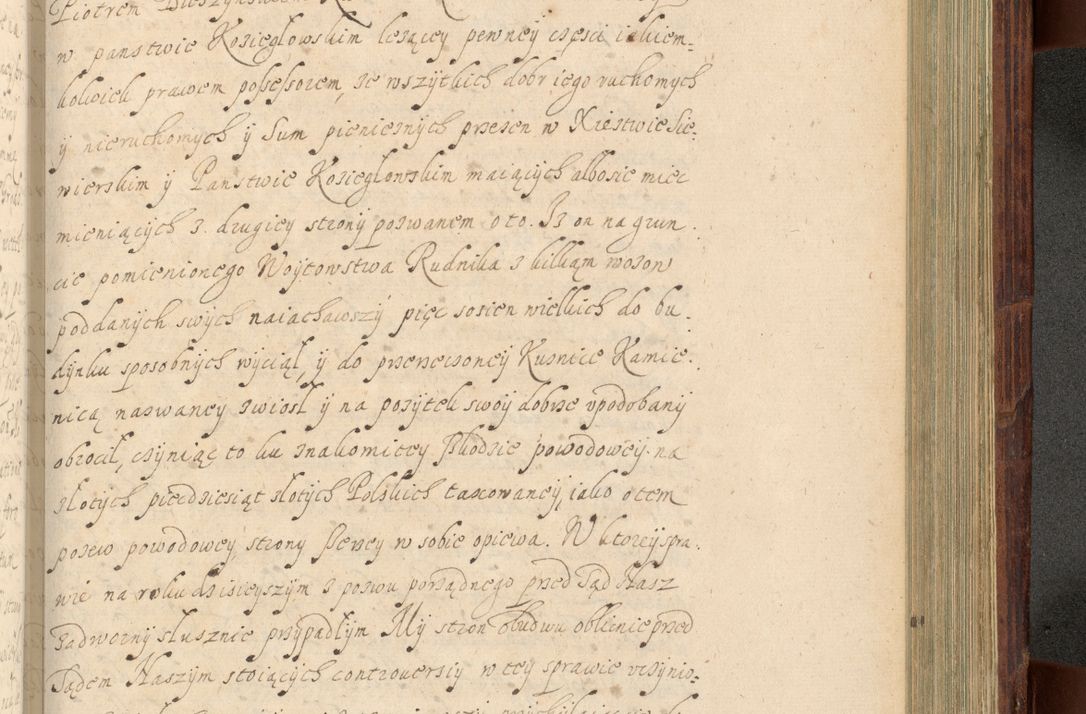 Piotrem
w panstwie Kozieglowskim lezącey pewney częsci iakiem=
kolwiek prawem possessorem, ze wszytkich dobr iego ruchomych
ÿ nieruchomych ÿ Sum pienieznych przezen w Xiestwie Sie=
wierskim ÿ Panstwie Kozieglowskim maiących albo sie miec
mieniących z drugiey strony pozwanem o to. Iz on na grun=
cie pomienionego Woytowstwa Rudnika z kilkąm wozow
poddanych swych naiachawszy pięc sosien wielkich do bu=
dynku sposobnych wyciął, ÿ do przerzeczoney Kuznice Kamie=
nicą nazwaney zwiosł ÿ na pozytek swoy dobrze upodobany
obrocił, czyniąc to ku znakomitey szkodzie powodowey na
złotych piecdziesiąt złotych Polskich taxowaney, iako o tem
pozew powodowey strony szerzey w sobie opiewa. W ktorey spra=
wie na roku dzisieyszym z pozwu porządnego przed Sąd Nasz
Zadworny slusznie przypadłym My stron obudwu oblicznie przed
Sądem Naszym stoiących controversiy w tey sprawie uczynio=